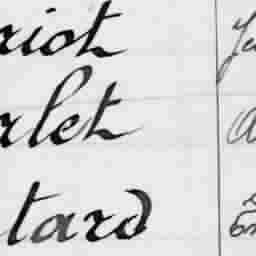 riot
rlet
tard